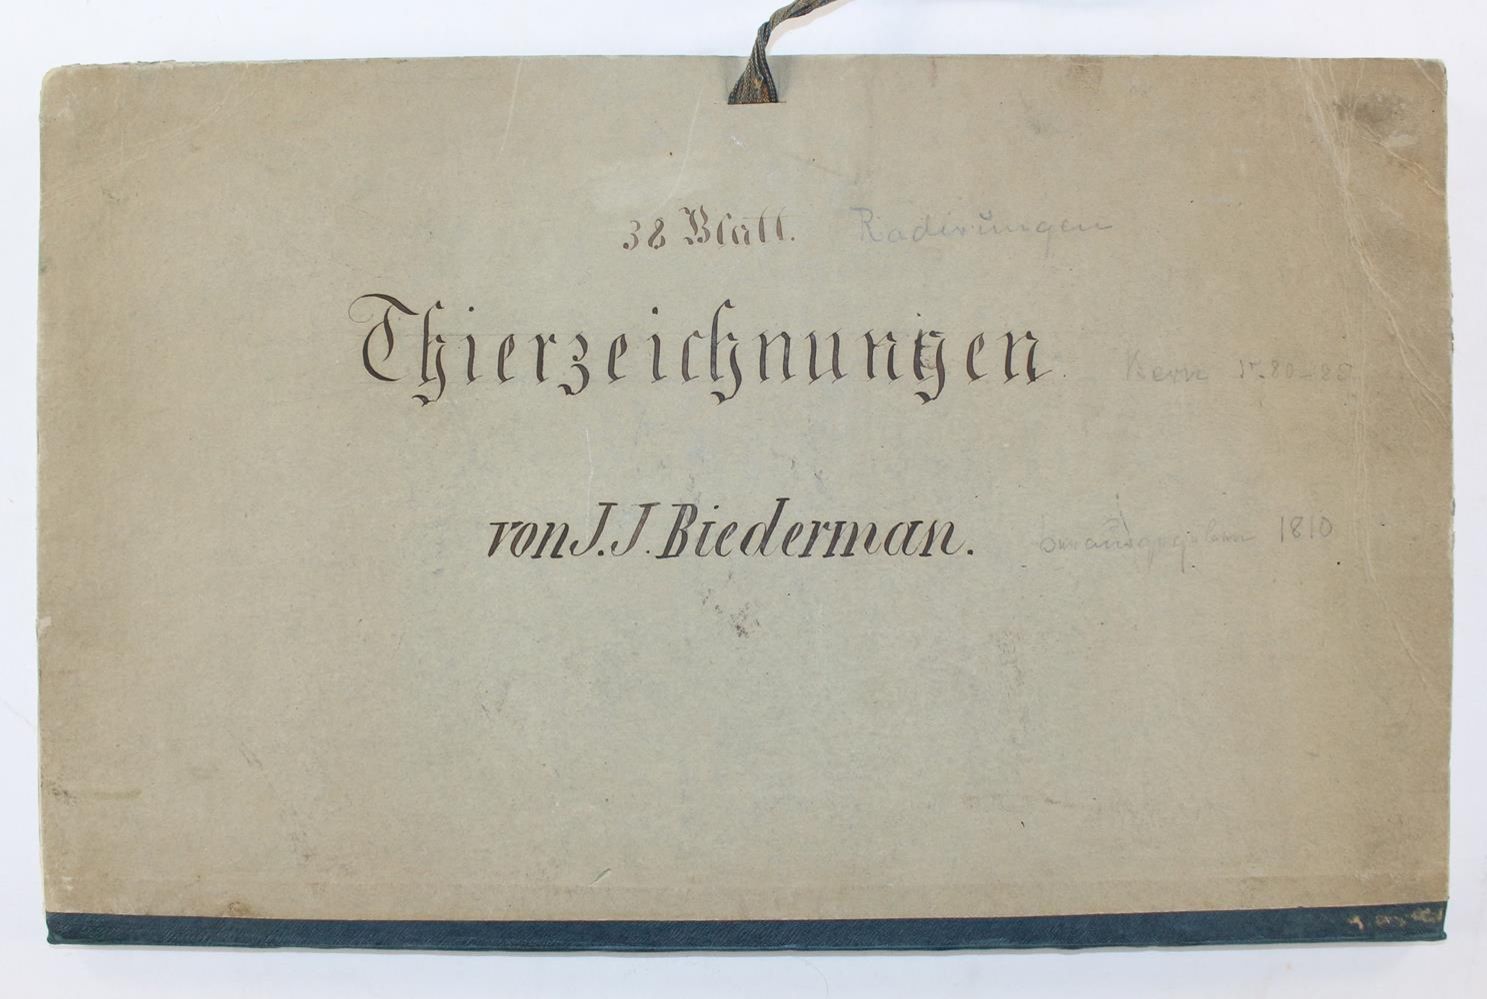 38 Blatt. Radierungen
Thierzeichnungen.
von J. J. Biederman. 1810